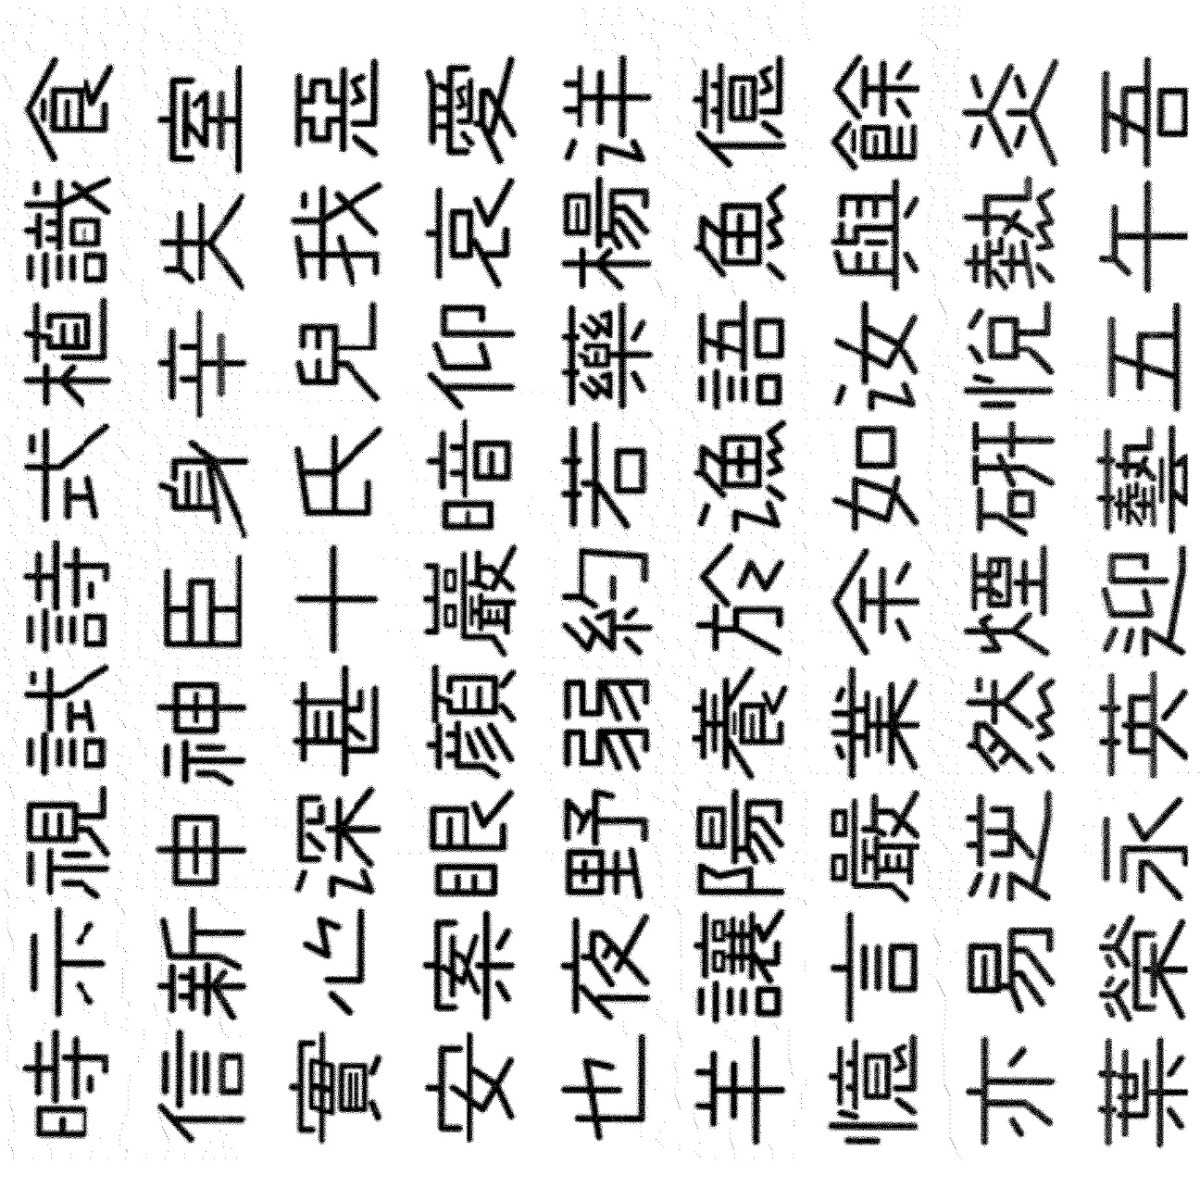 時示視試詩式植識食
信新申神臣身辛失室
實心深甚十氏兒我惡
安案眼顔巖暗仰哀愛
也夜野弱約若藥楊洋
羊讓陽養於漁語魚億
憶言嚴業余如汝與餘
亦易逆然煙硏悅熱炎
葉榮永英迎藝五午吾